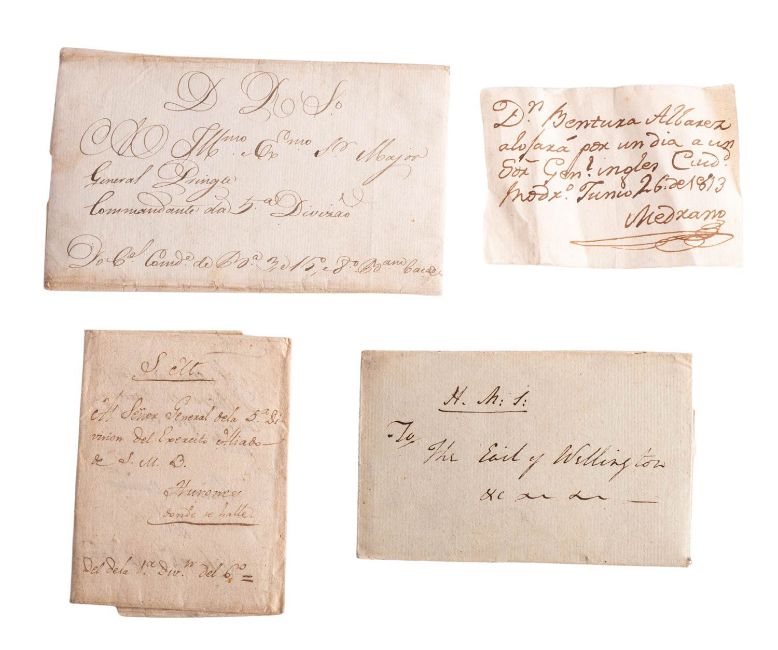 D R So
Illmo Exmo Sr Major
General Pringle
Commandante da 5a Divizaõ
Do Cel Comde de
Dn Bentura Albarez
alojará por un dia a un
Sor Genl ingles Ciudd
Rodro Junio 26. de 1813
Medrano
S. M.
Al Señor General de la 5a Di
vision del Exercito Aliado
de S. M. B.
donde se halle.
Del de la 1a Divn del 6o =
H. M: S:
To
The Earl of Wellington
&c